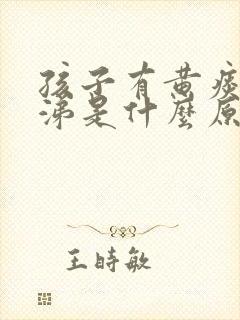 孩子有黄痰
涕是什麼原
王時敏